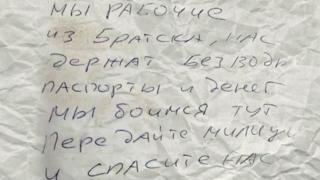 мы рабочие
из Братска, нас
держат без воды
паспорты и денег
мы боимся тут
передайте милиции
и спасите нас